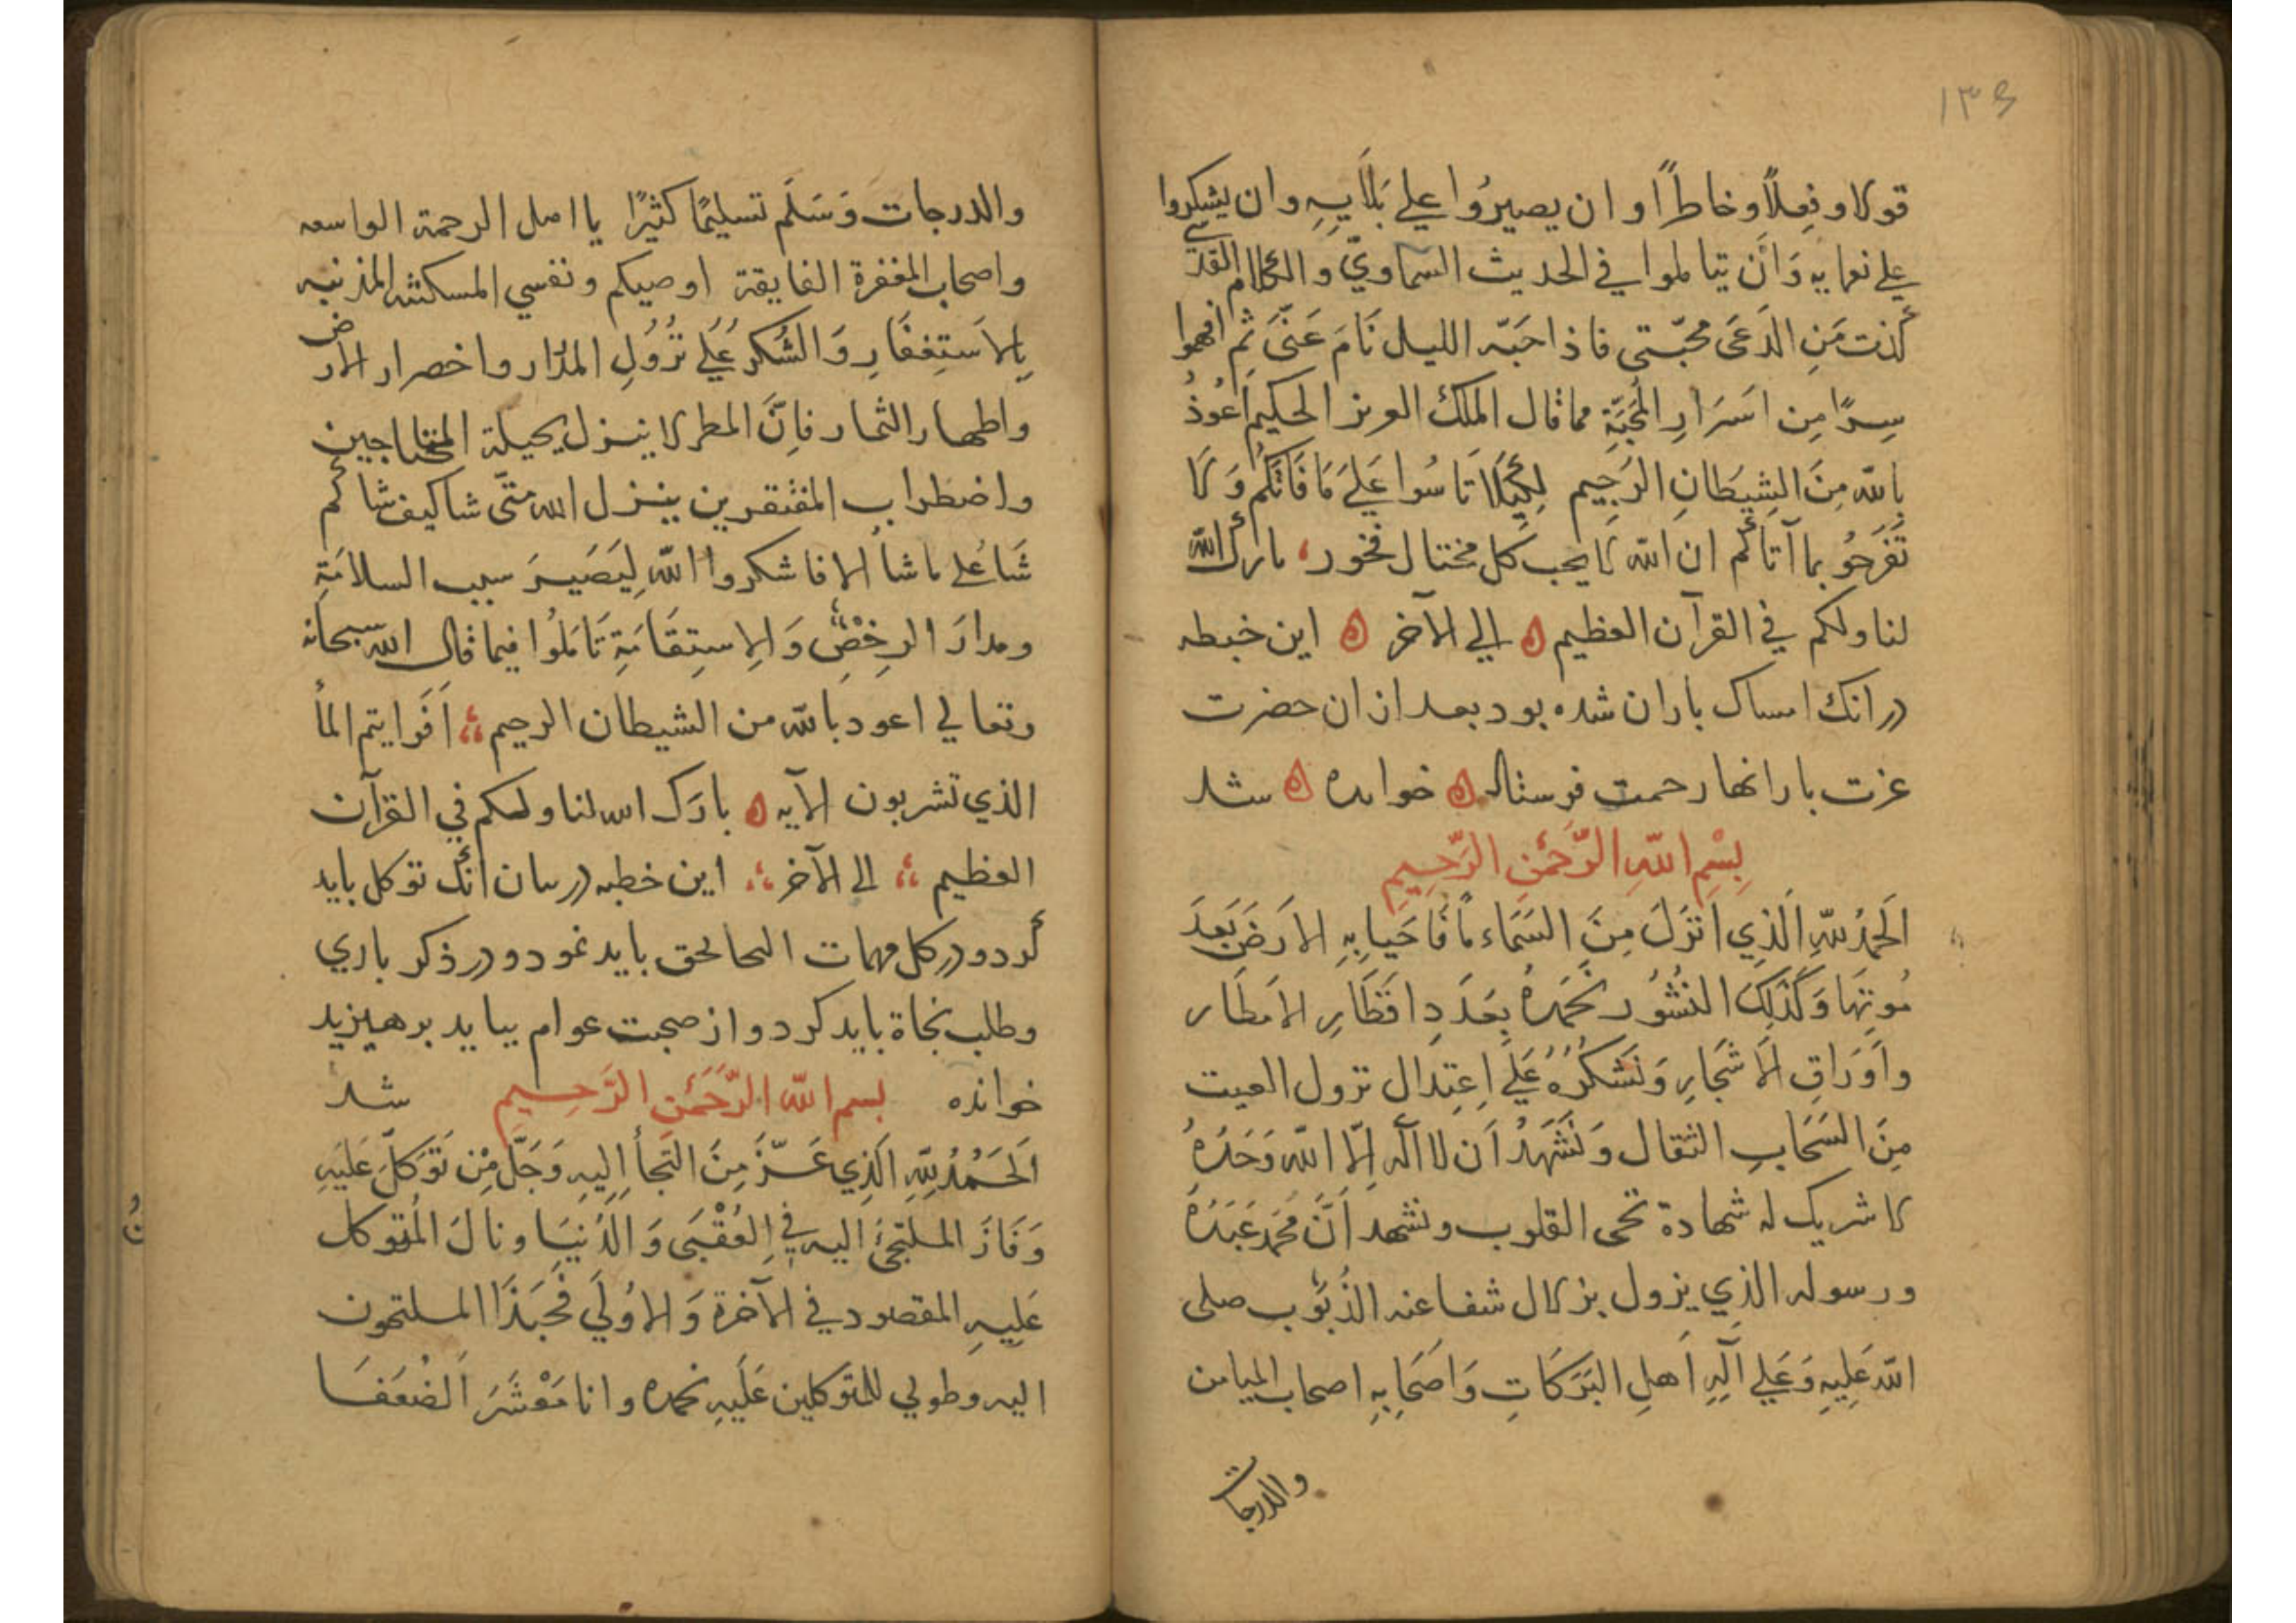 ۱۳۶
قولا وفعلاً وخاطراً وان يصيرُوا علي بَلَايِهِ وان يشكروا
علي نعمايه وَاَن يتاملوا في الحديث السماويّ والكلام القدسي
كذبت مَن ادّعَى محبّتي فاذا جَنّه الليل نَامَ عَنّى ثم افهموا
سِرًا مِن اسَرَارِ المَحَبَّةِ مما قال الملك العزيز الحكيم اَعُوذُ
بِاللّه مِنَ الشيطَانِ الرَجِيم لِكَيلَا تَاسُوا عَلَى مَا فَاتَكُم وَلَا
تَفرَحُو بما آتاكم ان اللّه لا يحب كل مختال فخور، بارك اللّه
لنا ولكم في القرآن العظيم ه الي الآخر ه اين خبطه
در انك امساك باران شده بود بعد ازان حضرت
عزت بارانها رحمت فرستاد ه خوانده ه شد
بِسْمِ اللّهِ الرَّحْمٰنِ الرَّحِيمِ
الَحَمدُ لِلّهِ الَّذِي اَنزَلَ مِنَ السَمَاء مَاً فَاَحيَا بِهِ الاَرضَ بَعدَ
مَوتِهَا وَكَذَلِكَ النُشُور نَحمَدُهُ بِعَدَدِ اقَطَارِ الامَطَار
وَاَورَاقِ الاَشجَارِ وَنَشكُرُهُ عَلَى اِعتِدال نزول الغيث
مِنَ السَحَابِ الثقال وَنَشهَدُ اَن لا اله اِلّا اللّه وَحَدَهُ
لا شريك له شهادة تحى القلوب ونشهد اَنَّ مُحَمد عَبَدُهُ
ورسوله الذِي يزول بزلال شفاعته الذُنُوب صلى
اللّه عَلِيهِ وَعَلي آلِهِ اَهلِ البَرَكَاتِ وَاَصَحَابِهِ اصحاب الميامن
والدرجات
والدرجات وَسَلَم تسليمًا كثيرًا يا اهل الرحمة الواسعه
واصحاب المغفرة الفايقة اوصيكم ونفسي المسكنته المذنبه
بِالاَستِغفَارِ وَالشُكرِ عَلَى نُزُولِ المدرار واخضرار الارض
واظهار الثمار فاِنَّ المطر لا ينزل بحيلة المحتاجين
واضطراب المفتقرين ينزل اللّه متَى شا كيف شا كم
شَا عَلي ما شا الا فاشكروا اللّه لِيَصَيرَ سبب السلامَةِ
ومدارَ الرخِصِ وَالاِستِقَامَةِ تَامَلُوا فيما قال اللّه سبحانه
وتعالي اعود باللّه من الشيطان الرجيم اَفَرَايتم المأ
الذي تشربون الآيه ه بارَك اللّه لنا ولكم في القرآن
العظيم الي الآخر اين خطبه در بيان انك توكل بايد
كرد ودر كل مهمات التجا بحق بايد نمود ودر ذكر باري
وطلب نجاة بايد كرد واز صحبت عوام ببايد برهيزيد
خوانده بسم اللّه الرَّحَمٰنِ الرَّحِيمِ شد
اَلحَمدُ لِلّهِ الَذِي عَزَّ مِنَ التَجأَ اِليهِ وَجَلَّ مِن تَوَكلَ عَلَيهِ
وَفَازَ المُلتَجِئُ اليه في العُقْبَى وَالدُنيَا ونالَ المُتوكل
عَلِيهِ المقصود في الآخرة وَالاوُلَي فَحَبَذَا الملتجون
اليه وطوبي للمتوكلين عَلَيهِ نحمده وانا مَعْشَرَ الضُعَفَا